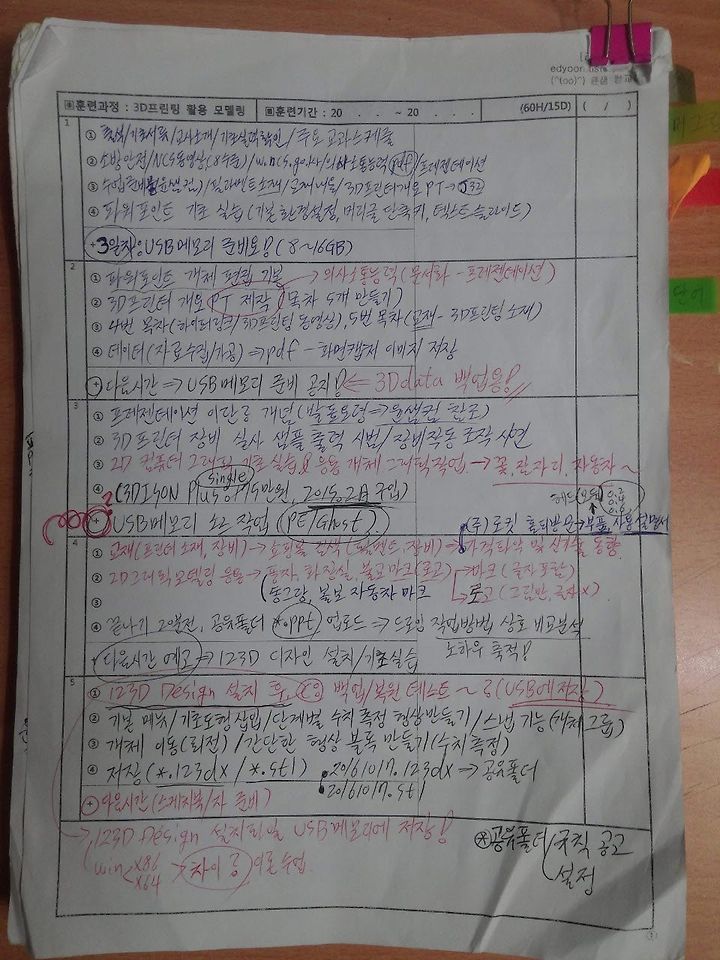 edyoon
(^(oo)^)
훈련과정 : 3D프린팅 활용 모델링 훈련기간 : 20 . . ~ 20 . . . (60H/15D) ( / )
1
① 출석/기초서류/교사소개/기초실력확인/주요교과스케줄
② 소방안전/NCS동영상(8수준)/의사소통능력(pdf)/프레젠테이션
③ 필라멘트소재/교재내용/3D프린터개요 PT→
④ 파워포인트 기초 실습(기본환경설정, 머리글 단축키, 텍스트슬라이드)
+3일차: USB메모리 준비요!(8~16GB)
2
① 파워포인트 개체 편집 기본 → 의사소통능력(문서화 - 프레젠테이션)
② 3D프린터 개요 PT 제작(목차 5개 만들기)
③ 4번 목차(하이퍼링크/3D프린팅 동영상), 5번 목차(교재- 3D프린팅 소재)
④ 데이터(자료수집/가공) ⇒ pdf - 화면캡처 이미지 저장
+ 다음시간 ⇒ USB메모리 준비 공지! ⇐ 3D data 백업용!
3
① 프레젠테이션 이란? 개념(발표요령⇒윤샘컴 참조)
② 3D프린터 장비 실사 샘플 출력 시범/장비작동 조작 시연
③ 2D 컴퓨터 그래픽 기초실습 & 응용 개체 그래픽작업 → 꽃, 팔자리, 자동차~
single
④ (3DISON Plus 875만원, 2015.2月 구입)
+ USB메모리 소고 작업 (PE/Ghost)
(주)로킷 홀터방용→부품, 사용설명서
4
① 교재(프린터 소재, 장비)→쇼핑몰 검색(필라멘트, 장비)⇒가격파악 및 신기술 동향
② 2D그래픽모델링 응용→풍차, 화장실, 볼보마크(로고) ⇒마크(글자포함)
③ (동그랑, 볼보 자동차 마크 →로고(그림만, 글자X)
④ 끝나기 20분전, 공유폴더 *.ppt 업로드⇒드로잉 작업방법 상호 비교분석
노하우 축적!
+ 다음시간 예고⇒123D 디자인 설치/기초실습
5
① 123D Design 설치 후 C: 백업/복원 테스트~!(USB에 저장)
② 기본 메뉴/기초도형삽입/단계별 수치 측정 형상만들기/스냅 기능(개체그룹)
③ 개체 이동(회전)/간단한 형상 블록 만들기(수치측정)
④ 저장(*.123dx/*.stl) 20161017.123dx⇒공유폴더
20161017.stl
+ 다음시간(스케치북/자 준비)
→ 123D Design 설치파일 USB메모리에 저장!
win x86
x64 차이? 이론수업
* 공유폴더 규칙 공고
설정